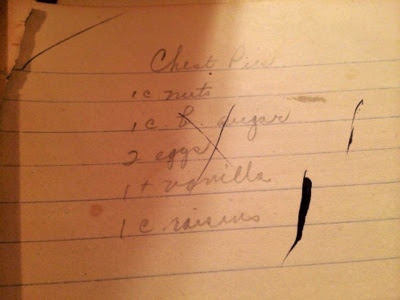 Chest Pies
1 c nuts
1 c b. sugar
2 eggs
1 t vanilla
1 c raisins